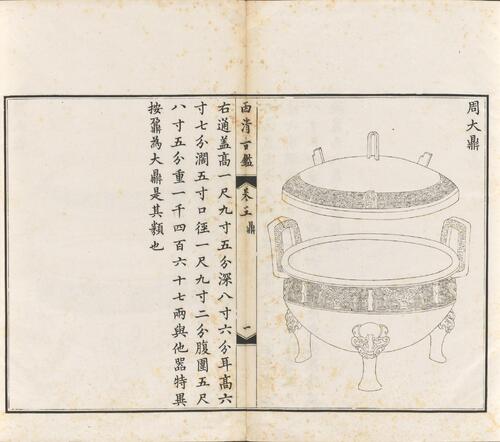 周大鼎
西清古鑑
卷三 鼎
一
右通盖高一尺九寸五分深八寸六分耳高六
寸七分濶五寸口徑一尺九寸二分腹圍五尺
八寸五分重一千四百六十七兩與他器特異
按鼐為大鼎是其類也